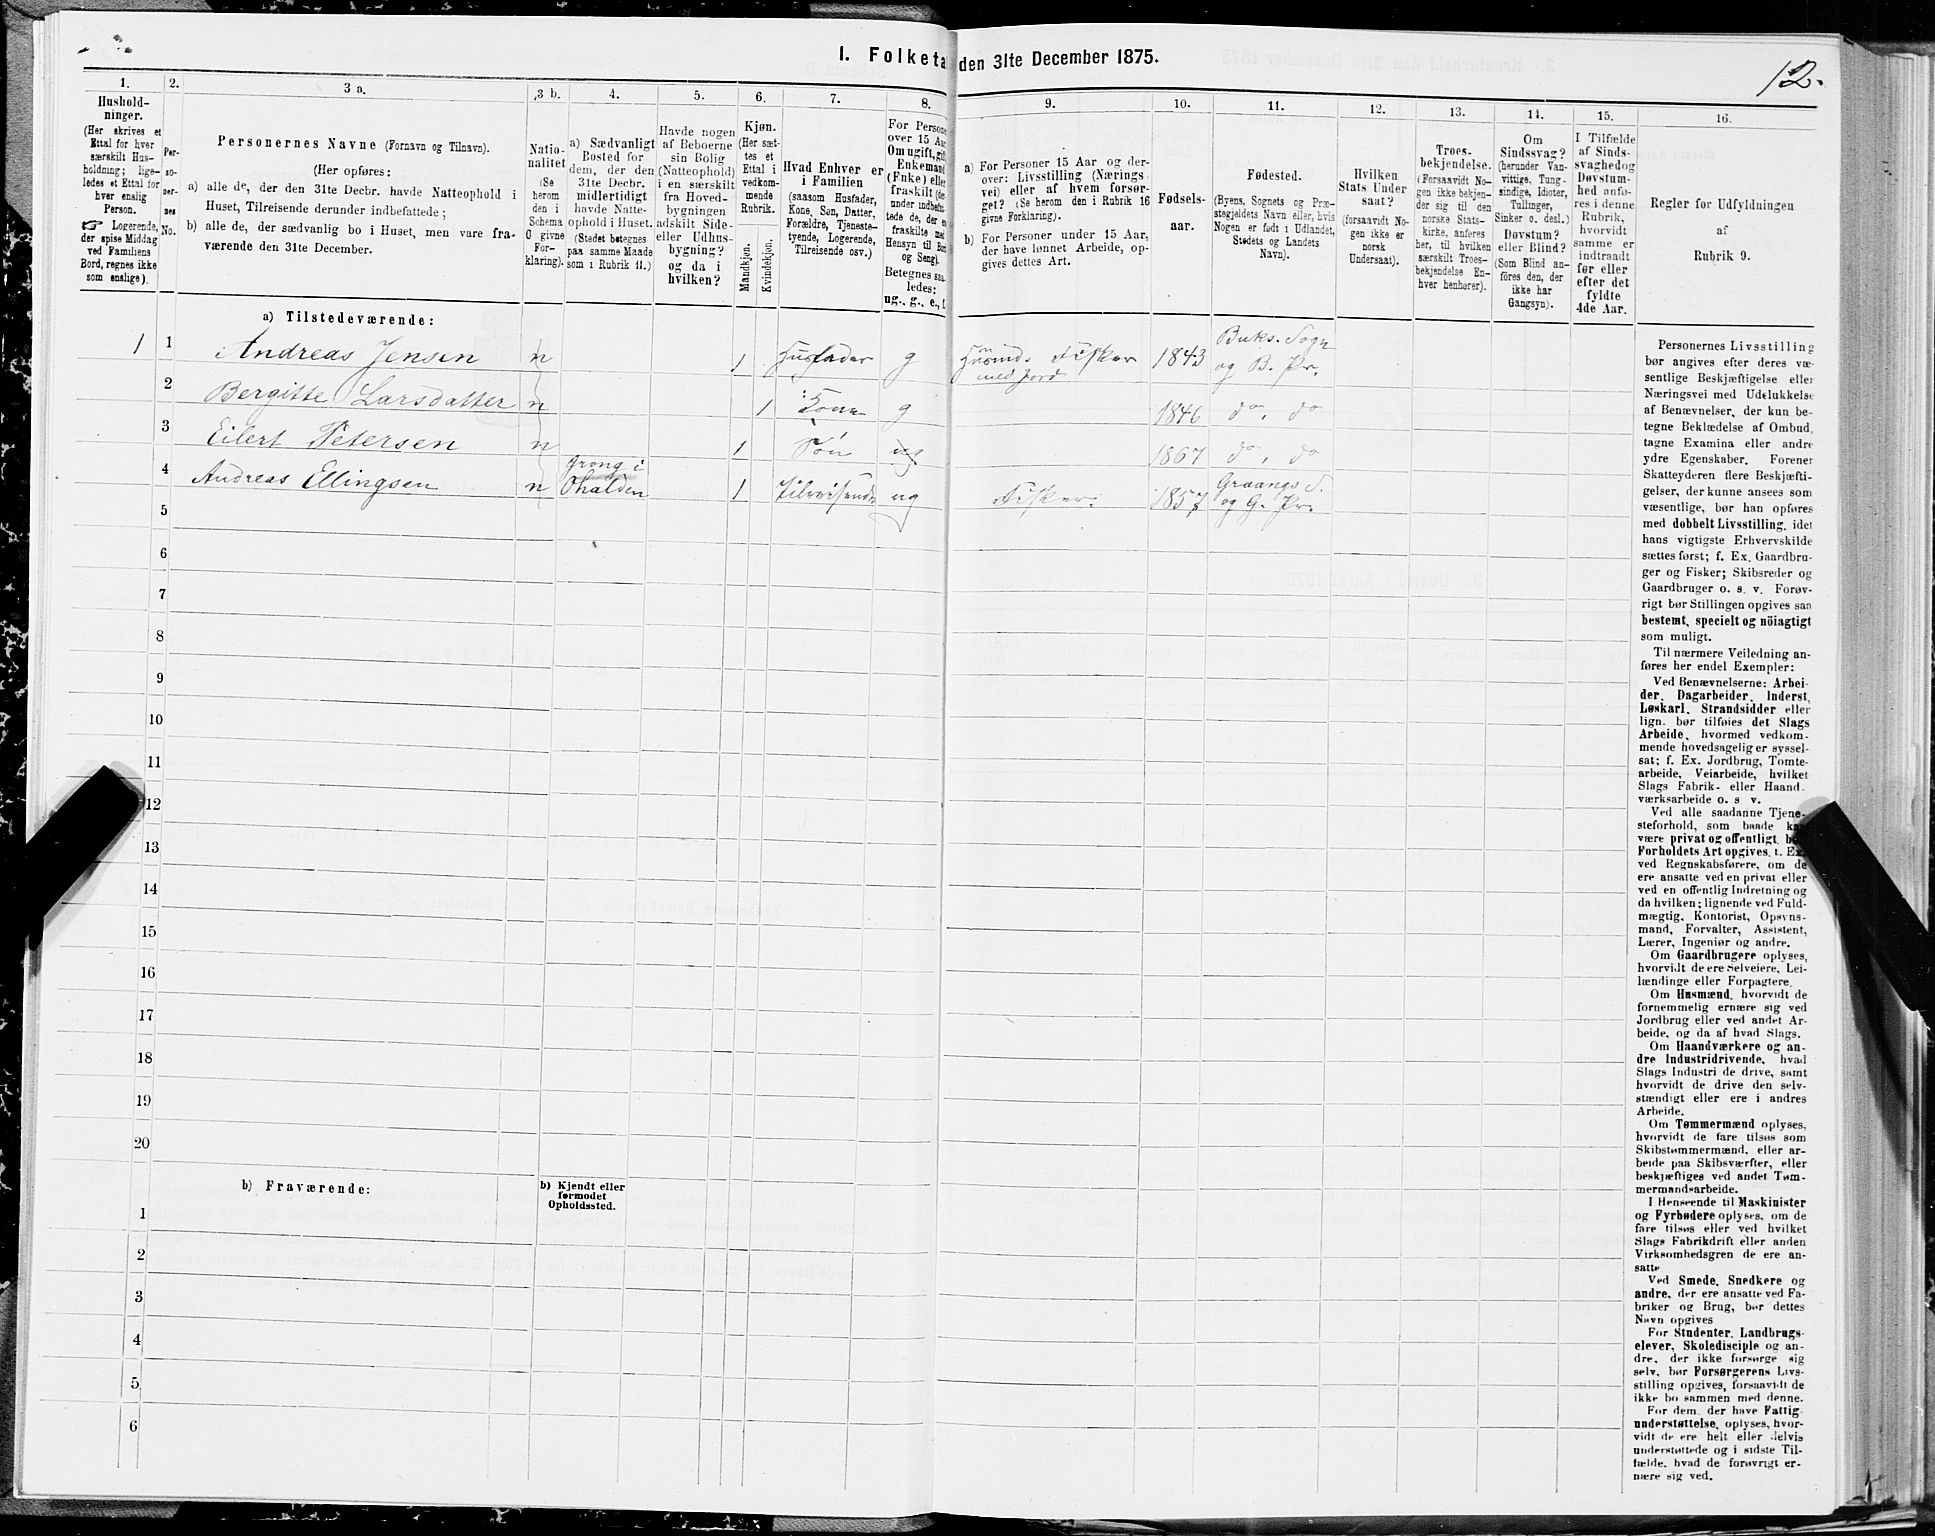 I. Folketa den 31te December 1875.
12.
1.
Hushold-
ninger.
(Her skrives et
Ettal for hver
særskilt Hus-
holdning; lige-
ledes et Ettal for
hver enslig
Person.
☞ Logerende,
der spise Middag
ved Familiens
Bord, regnes ikke
som enslige).
2.
Per-
so-
ner-
nes
No.
3 a.
Personernes Navne (Fornavn og Tilnavn).
(Her opføres:
a) alle de, der den 31te Decbr. havde Natteophold i
Huset, Tilreisende derunder indbefattede;
b) alle de, der sædvanlig bo i Huset, men vare fra-
værende den 31te December.
3 b.
Natio-
nalitet
(Se
herom
den i
Schema
O givne
For-
klaring).
4.
a) Sædvanligt
Bosted for
dem, der den
31te Decbr.
midlertidigt
havde Natte-
ophold i Huset.
(Stedet betegnes
paa samme Maade
som i Rubrik 11.)
5.
Havde nogen
af Beboerne
sin Bolig
(Natteophold)
i en særskilt
fra Hoved-
bygningen
adskilt Side-
eller Udhus-
bygning?
og da i
hvilken?
6.
Kjøn.
(Her sæt-
tes et
Ettal i
vedkom-
mende
Rubrik.
Mandkjøn.
Kvindekjøn.
7.
Hvad Enhver er
i Familien
(saasom Husfader,
Kone, Søn, Datter,
Forældre, Tjeneste-
tyende, Logerende,
Tilreisende osv.)
8.
For Persone
over 15 Aar
Om ugift, gift
Enkemand
(Enke) eller
fraskilt (der-
under indbefat-
tede de, der er
fraskilte med
Hensyn til Bor
og Seng).
Betegnes saa-
ledes:
ug., g., e., f.
9.
a) For Personer 15 Aar og der-
over: Livsstilling (Nærings-
vei) eller af hvem forsør-
get? (Se herom den i Rubrik 16
givne Forklaring).
b) For Personer under 15 Aar,
der have lønnet Arbeide, op-
gives dettes Art.
10.
Fødsels-
aar.
11.
Fødested.
(Byens, Sognets og Præ-
stegjeldets Navn eller, hvis
Nogen er født i Udlandet,
Stedets og Landets
Navn).
12.
Hvilken
Stats Under
saat?
(forsaavidt No-
gen ikke er
norsk
Undersaat).
13.
Troes-
bekjendelse.
(Forsaavidt No-
gen ikke bekjen-
der sig til den
norske Stats-
kirke, anføres
her, til hvilken
særskilt Troes-
bekjendelse En-
hver henhører).
14.
Om
Sindssvag?
(herunder Van-
vittige, Tung-
sindige, Idioter,
Tullinger,
Sinker o. desl.)
Døvstum?
eller Blind?
(Som Blind an-
føres den, der
ikke har
Gangsyn).
15.
I Tilfælde
af Sinds-
svaghed og
Døvstum-
hed anfø-
res i denne
Rubrik,
hvorvidt
samme er
indtraadt
før eller
efter det
fyldte
4de Aar.
16.
Regler for Udfyldningen
af
Rubrik 9.
a) Tilstedeværende:
1 1 Andreas Jensen n 1 Husfader g Husmd. Fisker 1843 Buks. Sogn
med Jord og B. Pr.
2 Bergitte Larsdatter n 1 Kone g 1846 do, do
3 Eilert Petersen n 1 Søn ug 1867 do, do
4 Andreas Ellingsen n Grong i 1 tilreisende ug Fisker. 1857 Graangs S.
og G. Pr.
5
6
7
8
9
10
11
12
13
14
15
16
17
18
19
20
b) Fraværende:
b) Kjendt eller
formodet
Opholdssted.
1
2
3
4
5
6
Personernes Livsstilling
bør angives efter deres væ-
sentlige Beskjæftigelse eller
Næringsvei med Udelukkelse
af Benævnelser, der kun be-
tegne Beklædelse af Ombud,
tagne Examina eller andre
ydre Egenskaber. Forener
Skatteyderen flere Beskjæfti-
gelser, der kunne ansees som
væsentlige, bør han opføres
med dobbelt Livsstilling, idet
hans vigtigste Erhvervskilde
sættes først; f. Ex. Gaardbru-
ger og Fisker; Skibsreder og
Gaardbruger o. s. v. Forøv-
rigt bør Stillingen opgives saa
bestemt, specielt og nöiagtigt
som muligt.
Til nærmere Veiledning an-
føres her endel Exempler:
Ved Benævnelserne: Arbei-
der, Dagarbeider, Inderst,
Løskarl, Strandsidder eller
lign. bør tilføies det Slags
Arbeide, hvormed vedkom-
mende hovedsagelig er syssel-
sat; f. Ex. Jordbrug, Tomte-
arbeide, Veiarbeide, hvilket
Slags Fabrik- eller Haand-
værksarbeide o. s. v.
Ved alle saadanne Tjene-
steforhold, som baade kan
være privat og offentligt, bør
Forholdets Art opgives, f. Ex.
ved Regnskabsførere, om de
ere ansatte ved en privat eller
ved en offentlig Indretning og
da hvilken; lignende ved Fuld-
mægtig, Kontorist, Opsyns-
mand, Forvalter, Assistent,
Lærer, Ingeniør og andre.
Om Gaardbrugere oplyses,
hvorvidt de ere Selveiere, Lei-
lændinge eller Forpagtere.
Om Husmænd, hvorvidt de
fornemmelig ernære sig ved
Jordbrug eller ved andet Ar-
beide, og da af hvad Slags.
Om Haandværkere og an-
dre Industridrivende, hvad
Slags Industri de drive, samt
hvorvidt de drive den selv-
stændigt eller ere i andres
Arbeide.
Om Tømmermænd oplyses,
hvorvidt de fare tilsøs som
Skibstømmermænd, eller ar-
beide paa Skibsværfter, eller
beskjæftiges ved andet Tøm-
mermandsarbeide.
I Henseende til Maskinister
og Fyrbødere oplyses, om de
fare tilsøs eller ved hvilket
Slags Fabrikdrift eller anden
Virksomhedsgren de ere an-
satte
Ved Smede, Snedkere og
andre, der ere ansatte ved Fa-
briker og Brug, bør dettes
Navn opgives
For Studenter, Landbrugs-
elever, Skoledisciple og an-
dre, der ikke forsørge sig
selv, bør Forsørgerens Livs-
stilling opgives, forsaavidt de
ikke bo sammen med denne.
For dem, der have Fattig-
understøttelse, oplyses, hvor-
vidt de ere helt eller delvis
understøttede og i sidste Til-
fælde, hvad de forøvrigt er-
nære sig ved.